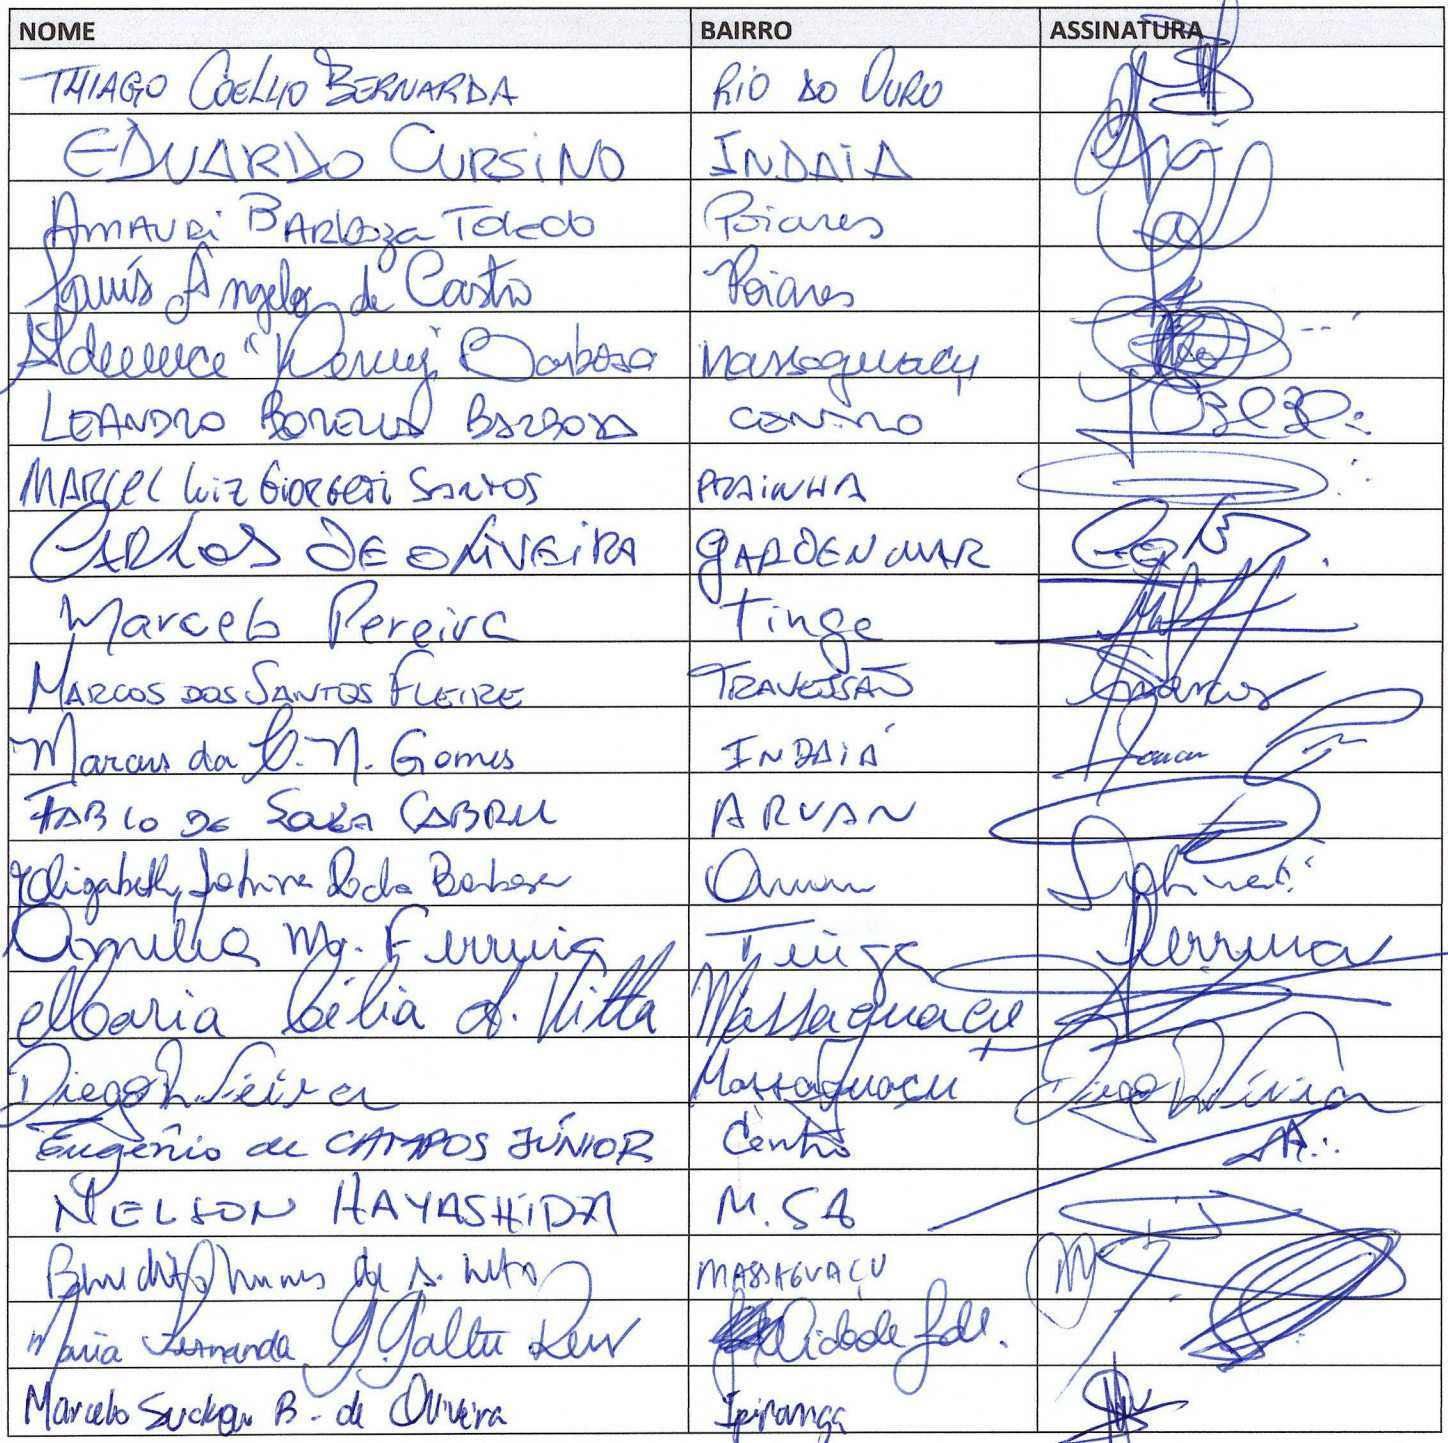 NOME BAIRRO ASSINATURA
THIAGO COELHO BERNARDA RIO DO OURO
EDUARDO CURSINO INDAIA
AMAURI BARboza Toledo Poiares
Luís Ângelo de Castro Poiares
Barbosa Massaguaçu
LEANDRO BORELLA BARBOSA CENTRO
MARCEL Luiz GIORGETI SANTOS PRAINHA
CARLOS DE OLIVEIRA GARDEN MAR
Marcelo Pereira Tinga
MARCOS DOS SANTOS FLEIRE TRAVESSÃO Marcos
Marcus da C. N. Gomes INDAIÁ
FABIO DE Souza CABRAL ARUAN
Elizabeth Rocha Barbosa Aruan
Amélia Mª. Ferreira Tinga Ferreira
Maria Célia A. Vitta Massaguacu
Diego Vieira Massaguaçu Diego Vieira
Eugênio de CAMPOS JÚNIOR Centro
NELSON HAYASHIDA M. SA
Benedito Nunes de S. Neto MASSAGUAÇU
Maria Fernanda Cidade Jd.
Marcelo B. de Oliveira Ipiranga